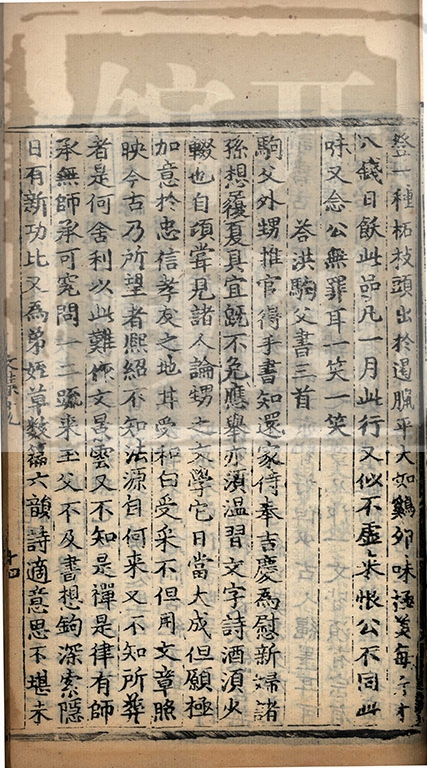 登一種柘枝頭出於遏臘平大如鷄卵味極美每斤才
八錢日飫此品凡一月此行又似不虛來恨公不同此
味又念公無罪耳一笑一笑
荅洪駒父書三首
駒父外甥推官得手書知還家侍奉吉慶爲慰新婦諸
孫想履夏具宜旣不免應舉亦須温習文字詩酒須少
輟也自頃甞見諸人論甥之文學它日當大成但願極
加意於忠信孝友之地甘受和白受采不但用文章照
映今古乃所望者熙紹不知法源自何来又不知所葬
者是何舍利以此難作文景雲又不知是禪是律有師
承無師承可究問一二疏来玉父不及書想鉤深索隱
日有新功比又爲弟姪草數篇六韻詩適意思不堪未
十四